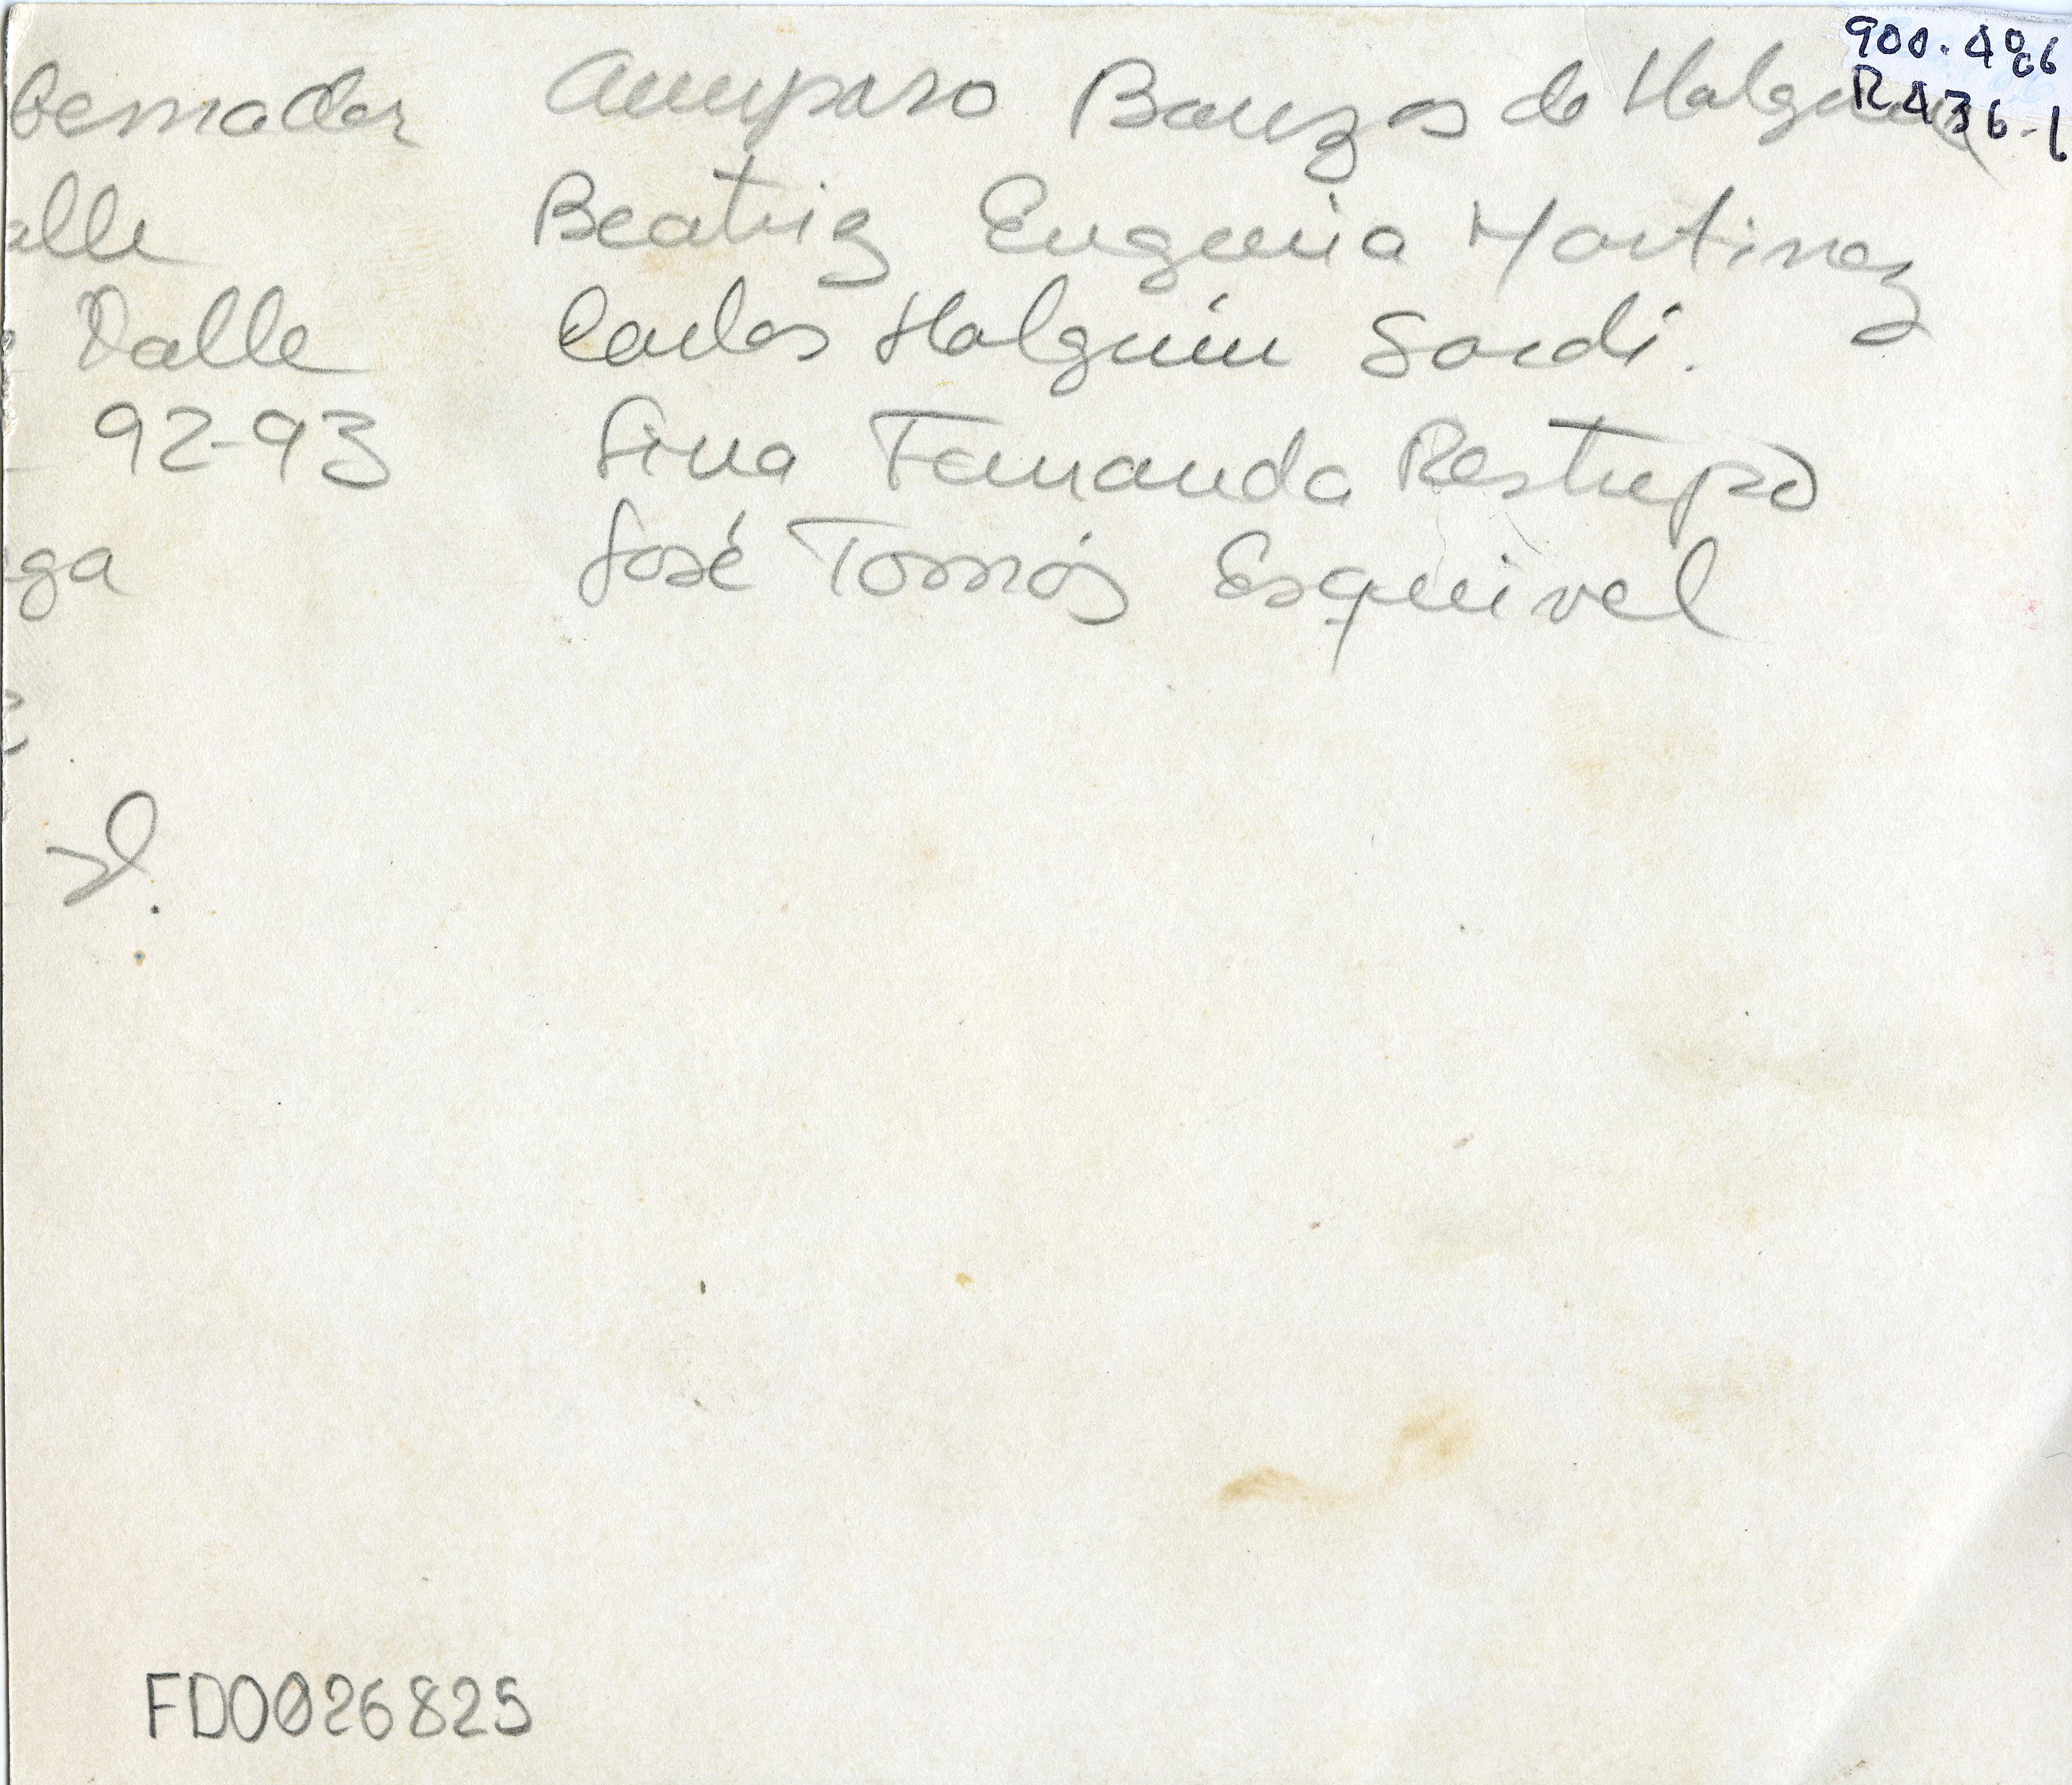 900.486
R436-1
bernador Amparo Bouzas de Holguín
alle Beatriz Eugenia Martinez
Valle Carlos Holguín Sardi.
92-93 Lina Fernanda Restrepo
ga José Tomás Esquivel
FD0026825